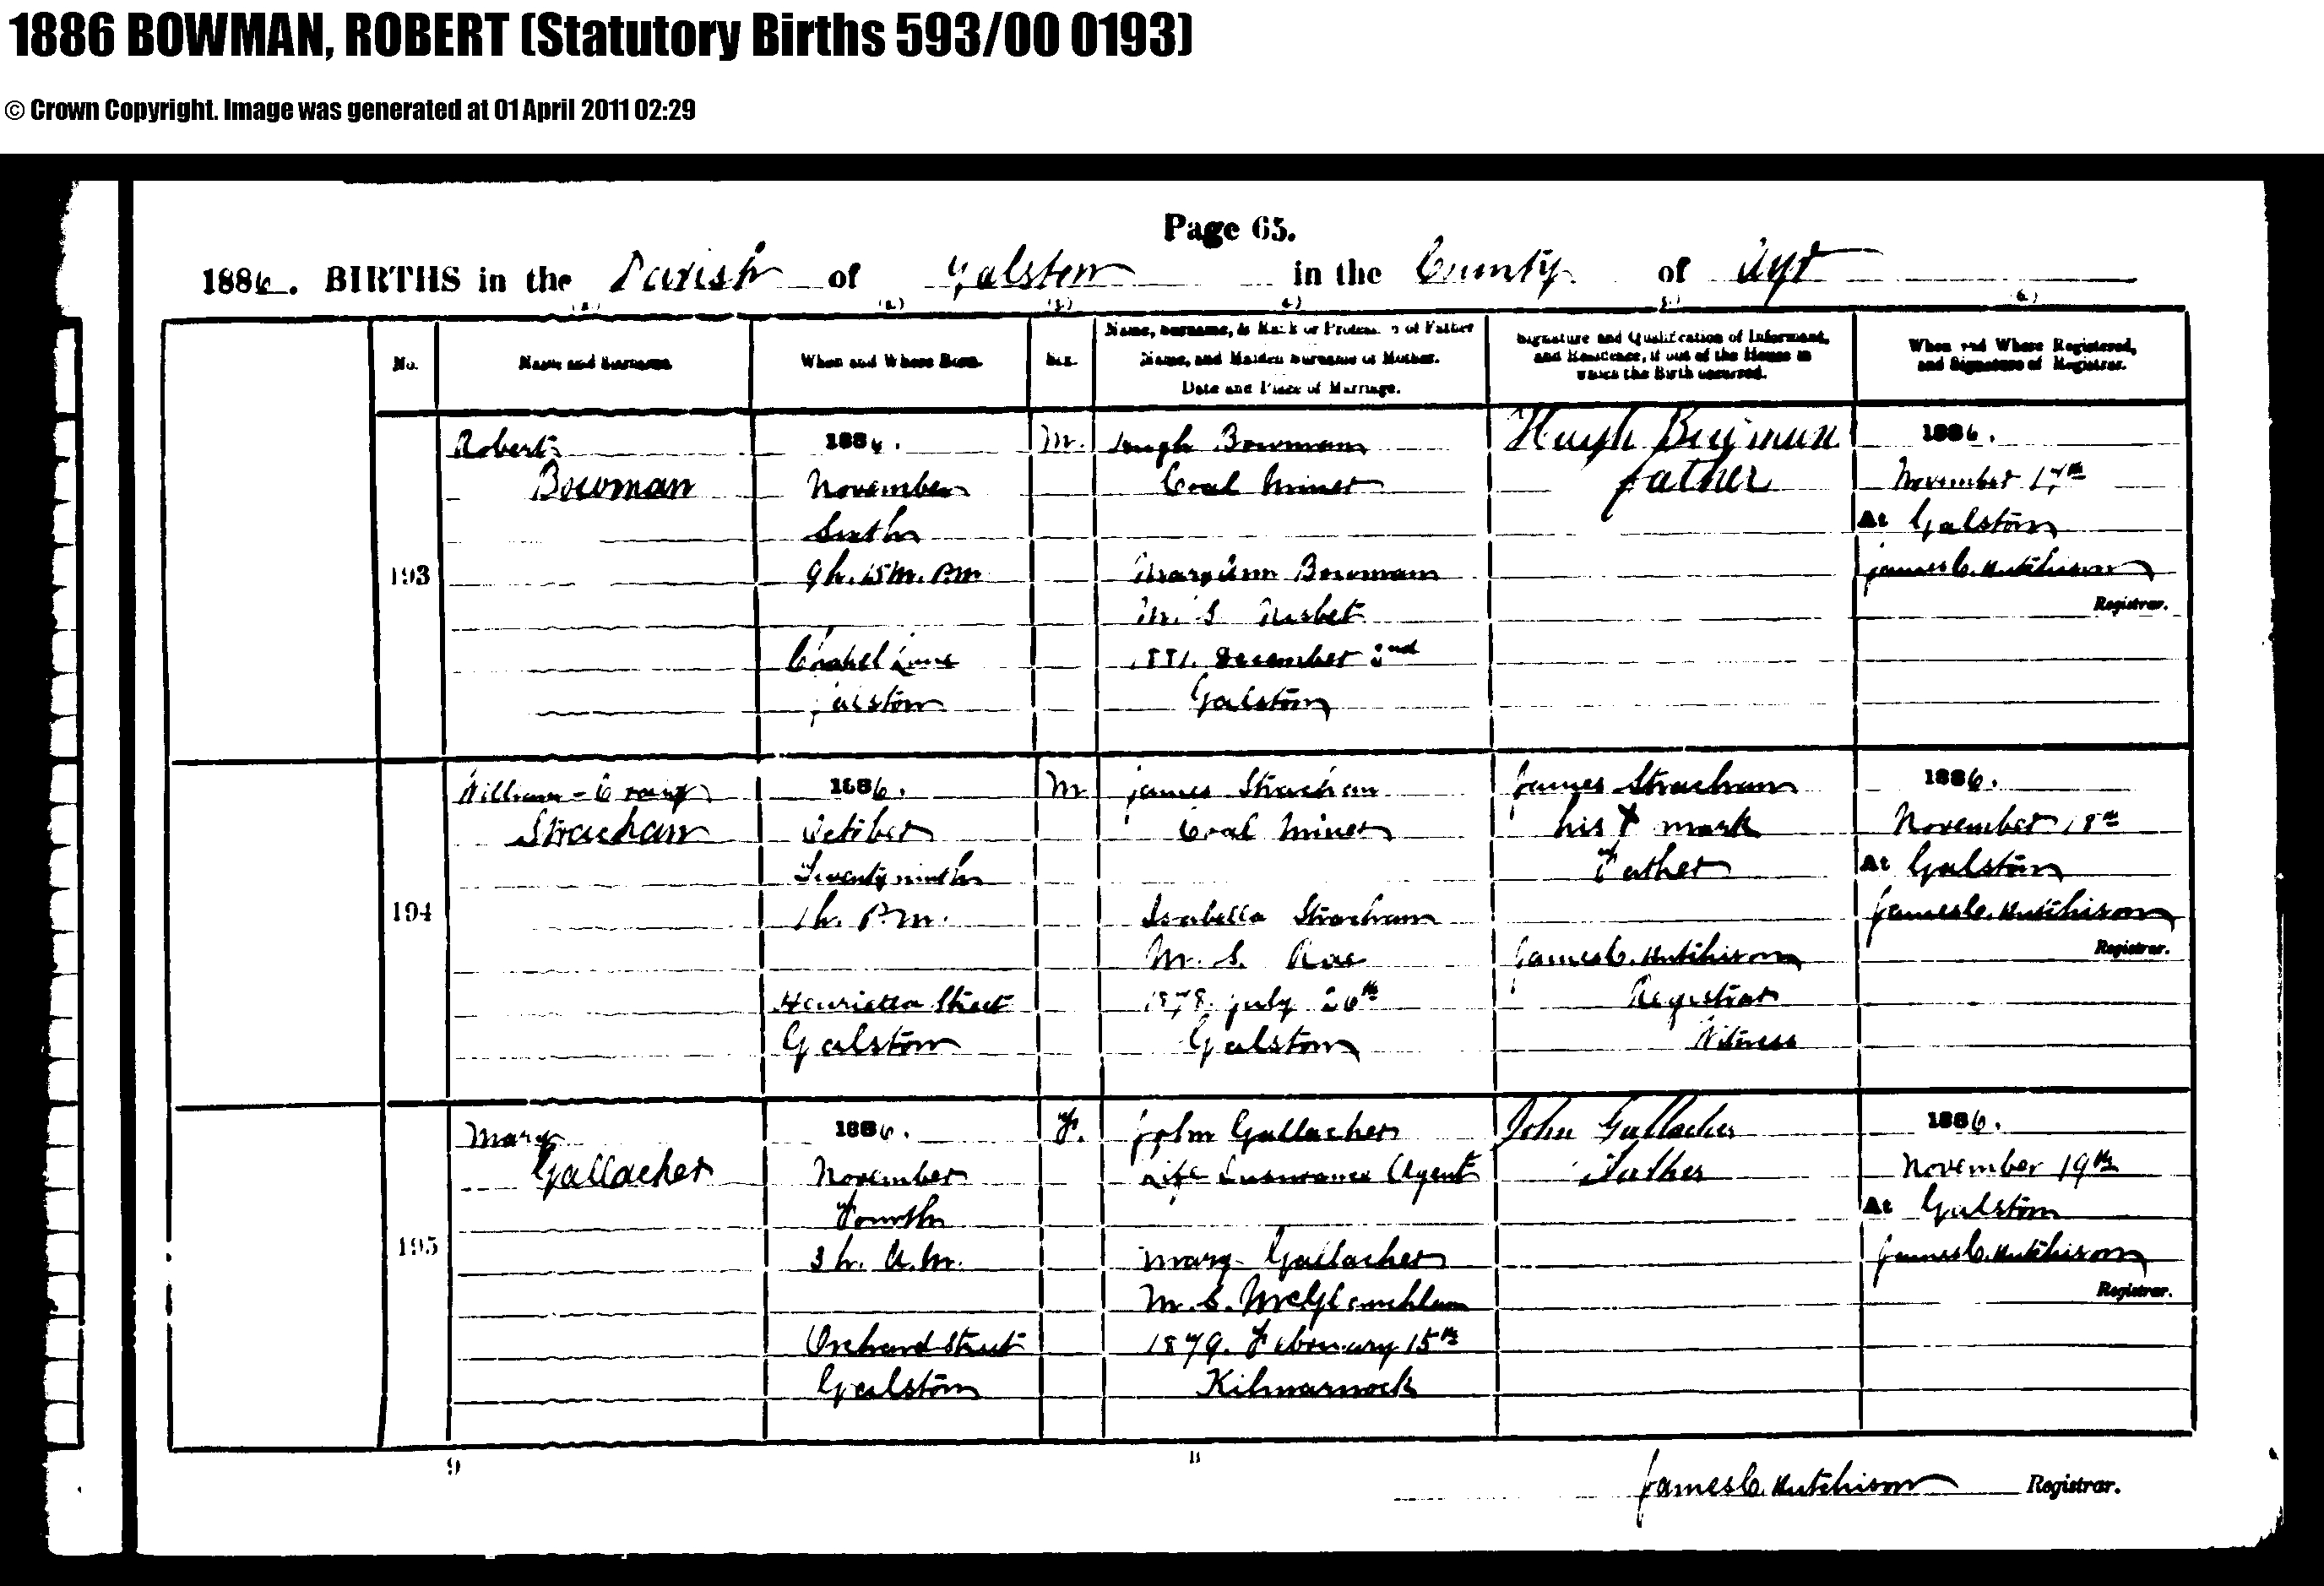 1886 BOWMAN, ROBERT (Statutory Births 593/00 0193)
© Crown Copyright. Image was generated at 01 April 2011 02:29
Page 65.
1886. BIRTHS in the Parish of Galston in the County of Ayr
(1) (2) (3) (4) (5) (6)
No.
Name and Surname.
When and Where Born.
Sex.
Name, Surname, & Rank or Profession of Father
Name, and Maiden Surname of Mother.
Date and Place of Marriage.
Signature and Qualification of Informant,
and Residence, if out of the House in
which the Birth occurred.
When and Where Registered,
and Signature of Registrar.
193
Robert
Bowman
1886.
November
Sixth
9h. 15m. P.M.
Chapel Lane
Galston
M.
Hugh Bowman
Coal Miner
Mary Ann Bowman
M.S. Nisbet
1881. December 2nd
Galston
Hugh Bowman
father
1886.
November 17th
At Galston
James C. Hutchison
Registrar.
194
William-Craig
Strachan
1886.
October
Twenty ninth
1h. P.M.
Henrietta Street
Galston
M
James Strachan
Coal Miner
Isabella Strachan
M.S. Rae
1878. July 26th
Galston
James Strachan
his X mark
Father
James C. Hutchison
Registrar
Witness
1886.
November 18th
At Galston
James C. Hutchison
Registrar.
195
Mary
Gallacher
1886.
November
Fourth
3h. A.M.
Orchard Street
Galston
F.
John Gallacher
Life Insurance Agent
Mary Gallacher
M.S. McGlauchlan
1879. February 15th
Kilmarnock
John Gallacher
Father
1886.
November 19th
At Galston
James C. Hutchison
Registrar.
9
James C. Hutchison Registrar.